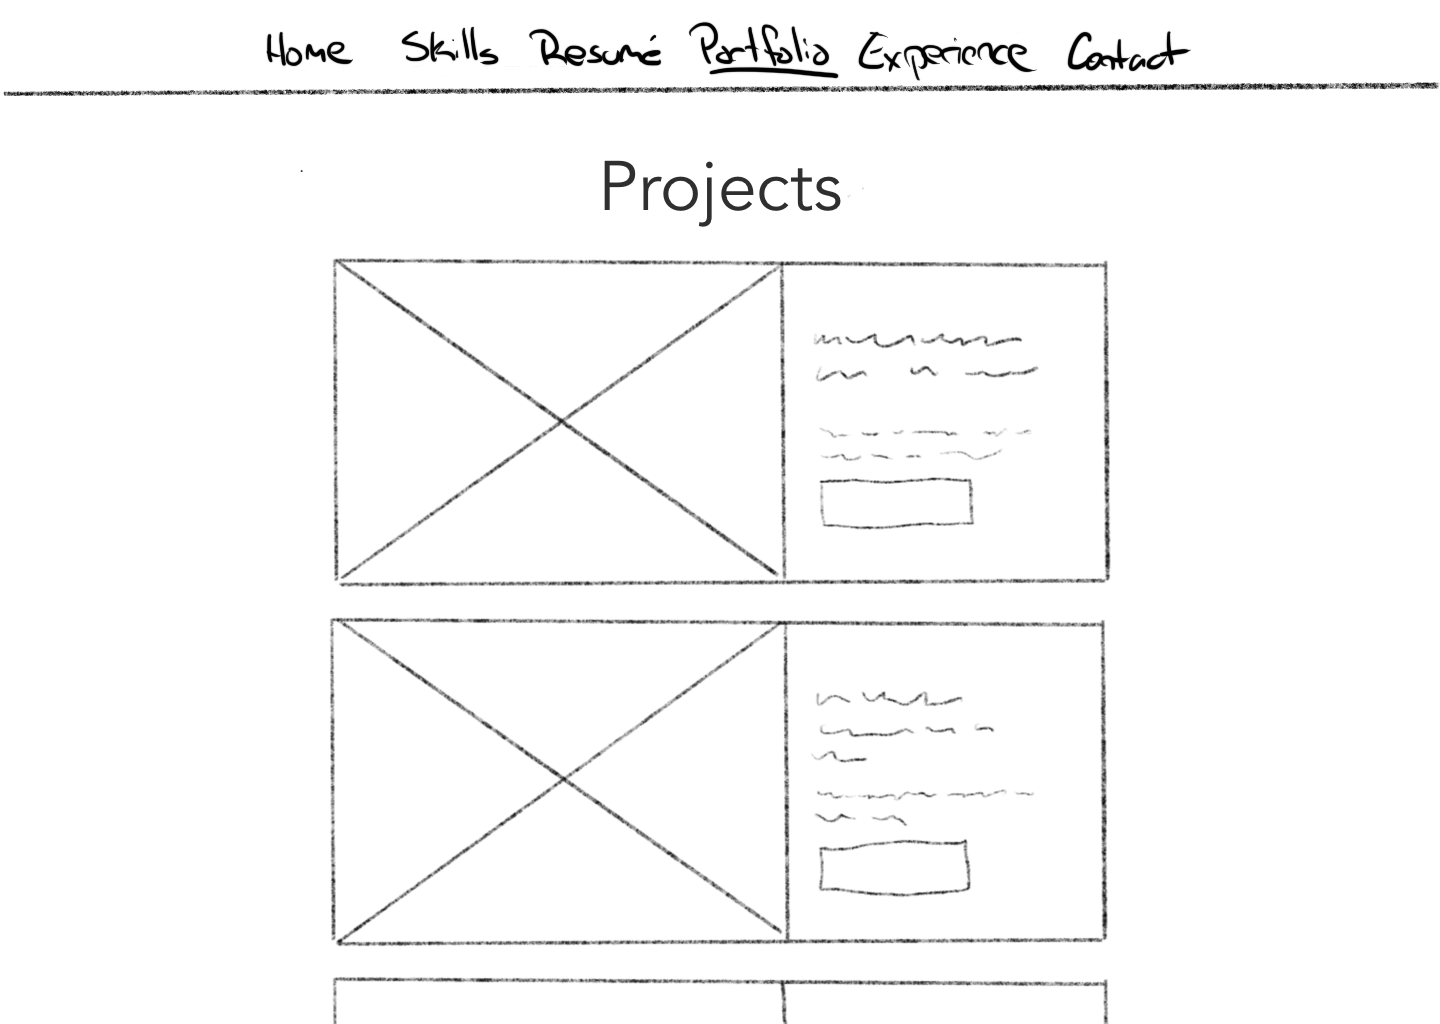 Home Skills Resumé Portfolio Experience Contact
Projects